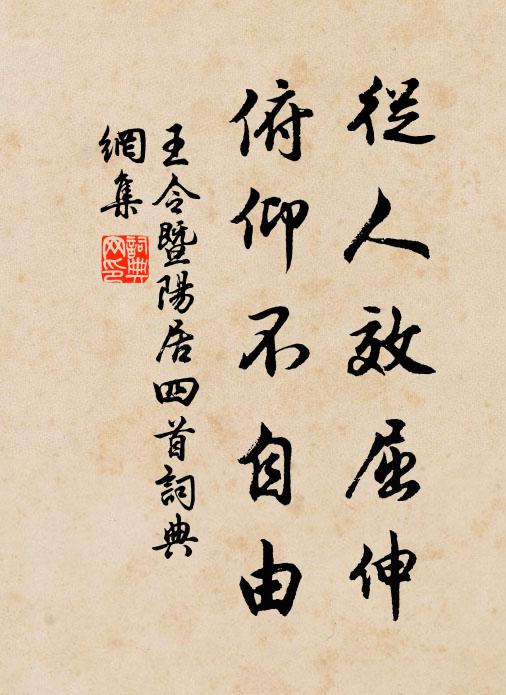 從人效屈伸
俯仰不自由
王令暨陽居四首詞典
網集
詞典
网印